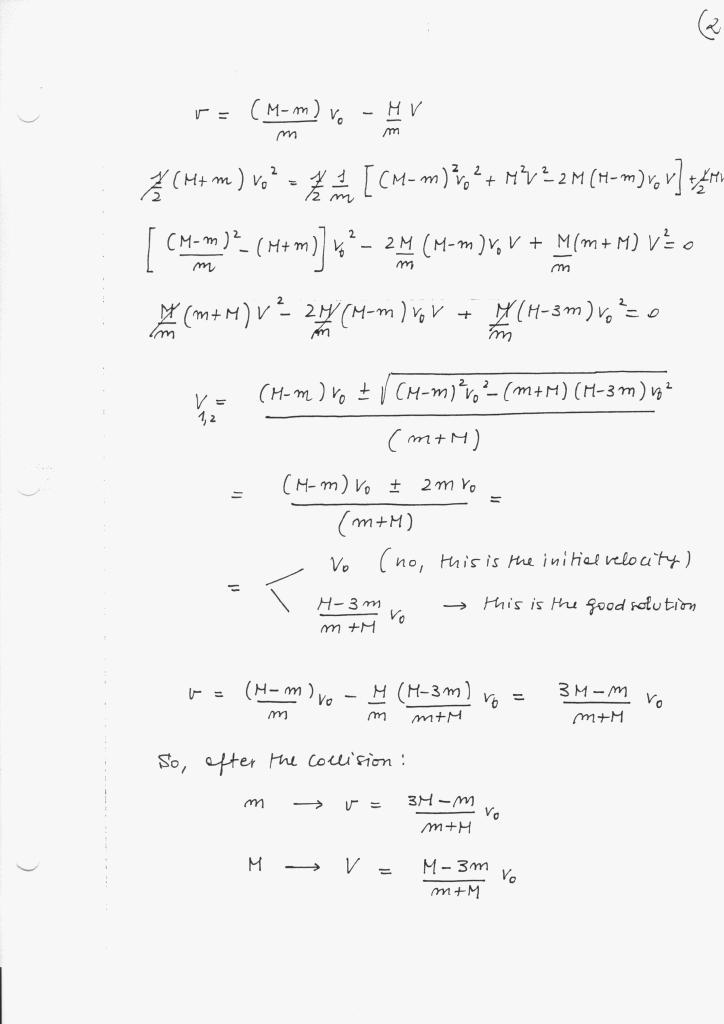 (2
v = (M-m)/m v₀ - M/m V
1/2 (M+m) v₀² = 1/2 1/m [(M-m)² v₀² + M²V² - 2M(M-m) v₀ V] + 1/2 MV
[(M-m)²/m - (M+m)] v₀² - 2M/m (M-m) v₀ V + M/m (m+M) V² = 0
M/m (m+M) V² - 2M/m (M-m) v₀ V + M/m (M-3m) v₀² = 0
V₁,₂ = ((M-m) v₀ ± √((M-m)² v₀² - (m+M)(M-3m) v₀²)) / (m+M)
= ((M-m) v₀ ± 2m v₀) / (m+M) =
= < v₀ (no, this is the initial velocity)
(M-3m)/(m+M) v₀ → this is the good solution
v = (M-m)/m v₀ - M/m (M-3m)/(m+M) v₀ = (3M-m)/(m+M) v₀
So, after the collision:
m → v = (3M-m)/(m+M) v₀
M → V = (M-3m)/(m+M) v₀